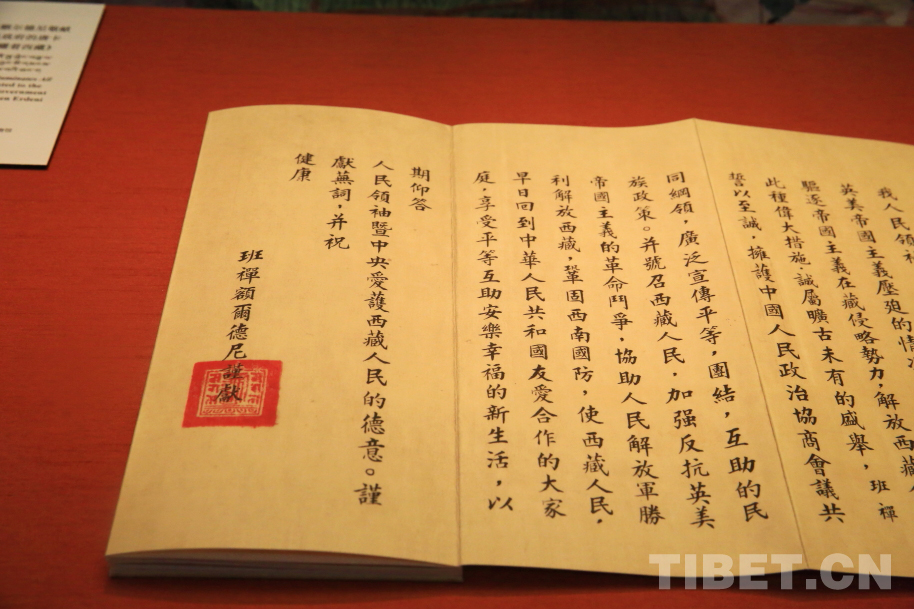 額尔德尼敬献
政府的唐卡
耀着西藏》
ted to the
overnment
en Erdeni
我人民領
英美帝國主義壓迫的情
驅逐帝國主義在藏侵略勢力，解放西藏
此種偉大措施，誠屬曠古未有的盛舉，班禪
誓以至誠，擁護中國人民政治協商會議共
同綱領，廣泛宣傳平等，團結，互助的民
族政策。并號召西藏人民，加强反抗英美
帝國主義的革命鬥爭，協助人民解放軍勝
利解放西藏，鞏固西南國防，使西藏人民，
早日回到中華人民共和國友愛合作的大家
庭，享受平等互助安樂幸福的新生活，以
期仰答
人民領袖暨中央愛護西藏人民的德意。謹
獻蕪詞，并祝
健康
班禪額爾德尼謹獻
TIBET.CN